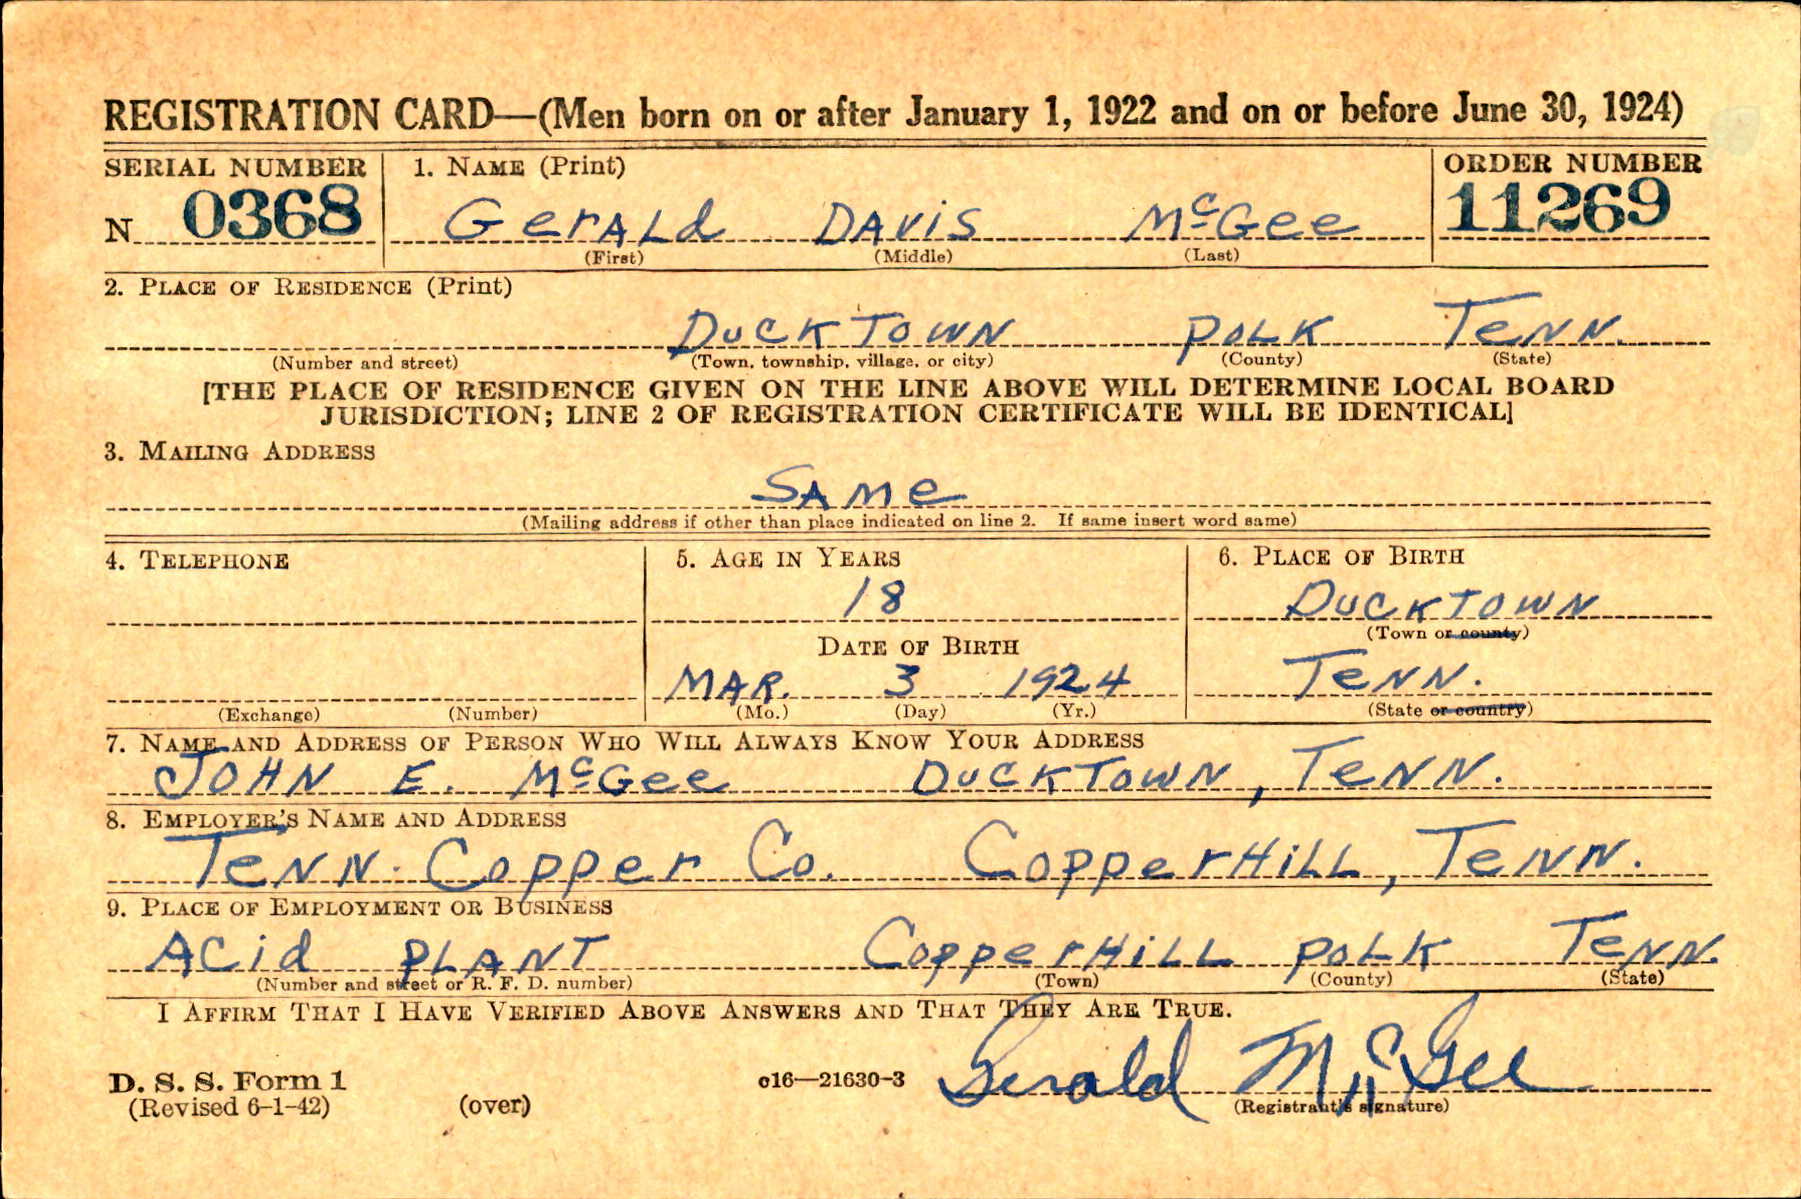 REGISTRATION CARD—(Men born on or after January 1, 1922 and on or before June 30, 1924)
SERIAL NUMBER 1. NAME (Print) ORDER NUMBER
N 0368 GerALd DAVIS McGee 11269
(First) (Middle) (Last)
2. PLACE OF RESIDENCE (Print)
DUCKTOWN POLK TeNN.
(Number and street) (Town, township, village, or city) (County) (State)
[THE PLACE OF RESIDENCE GIVEN ON THE LINE ABOVE WILL DETERMINE LOCAL BOARD
JURISDICTION; LINE 2 OF REGISTRATION CERTIFICATE WILL BE IDENTICAL]
3. MAILING ADDRESS
SAMe
(Mailing address if other than place indicated on line 2. If same insert word same)
4. TELEPHONE 5. AGE IN YEARS 6. PLACE OF BIRTH
18 DUCKTOWN
(Town or county)
DATE OF BIRTH
MAR. 3 1924 TeNN.
(Exchange) (Number) (Mo.) (Day) (Yr.) (State or country)
7. NAME AND ADDRESS OF PERSON WHO WILL ALWAYS KNOW YOUR ADDRESS
JOHN E. McGee DUCKTOWN, TeNN.
8. EMPLOYER'S NAME AND ADDRESS
TeNN. Copper Co. CopperHiLL, TeNN.
9. PLACE OF EMPLOYMENT OR BUSINESS
ACid PLANT CopperHiLL POLK TeNN.
(Number and street or R. F. D. number) (Town) (County) (State)
I AFFIRM THAT I HAVE VERIFIED ABOVE ANSWERS AND THAT THEY ARE TRUE.
D. S. S. Form 1 c16—21630-3 Gerald McGee
(Revised 6-1-42) (over) (Registrant's signature)